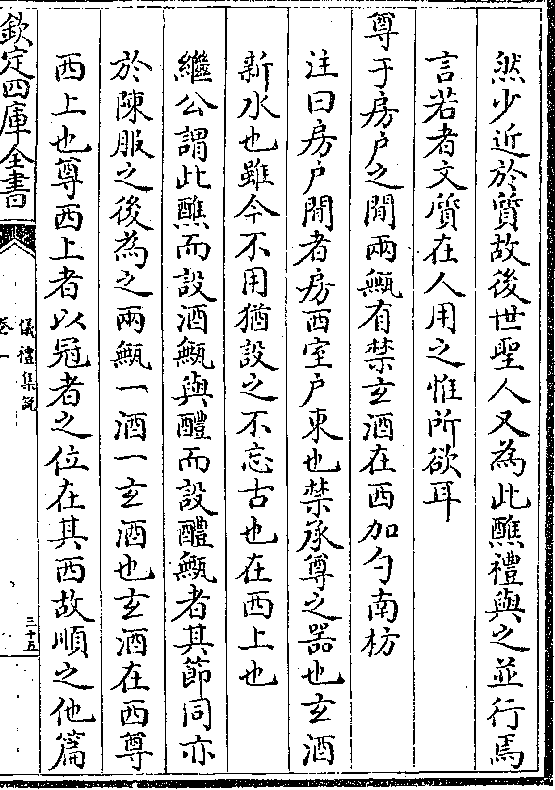 然少近於質故後世聖人又為此醮禮與之並行焉
言若者文質在人用之惟所欲耳
尊于房户之間兩甒有禁玄酒在西加勺南枋
注曰房户間者房西室户東也禁承尊之器也玄酒
新水也雖今不用猶設之不忘古也在西上也
繼公謂此醮而設酒甒與醴而設醴甒者其節同亦
於陳服之後為之兩甒一酒一玄酒也玄酒在西尊
西上也尊西上者以冠者之位在其西故順之他篇
欽定四庫全書
儀禮集說
卷一
三十五